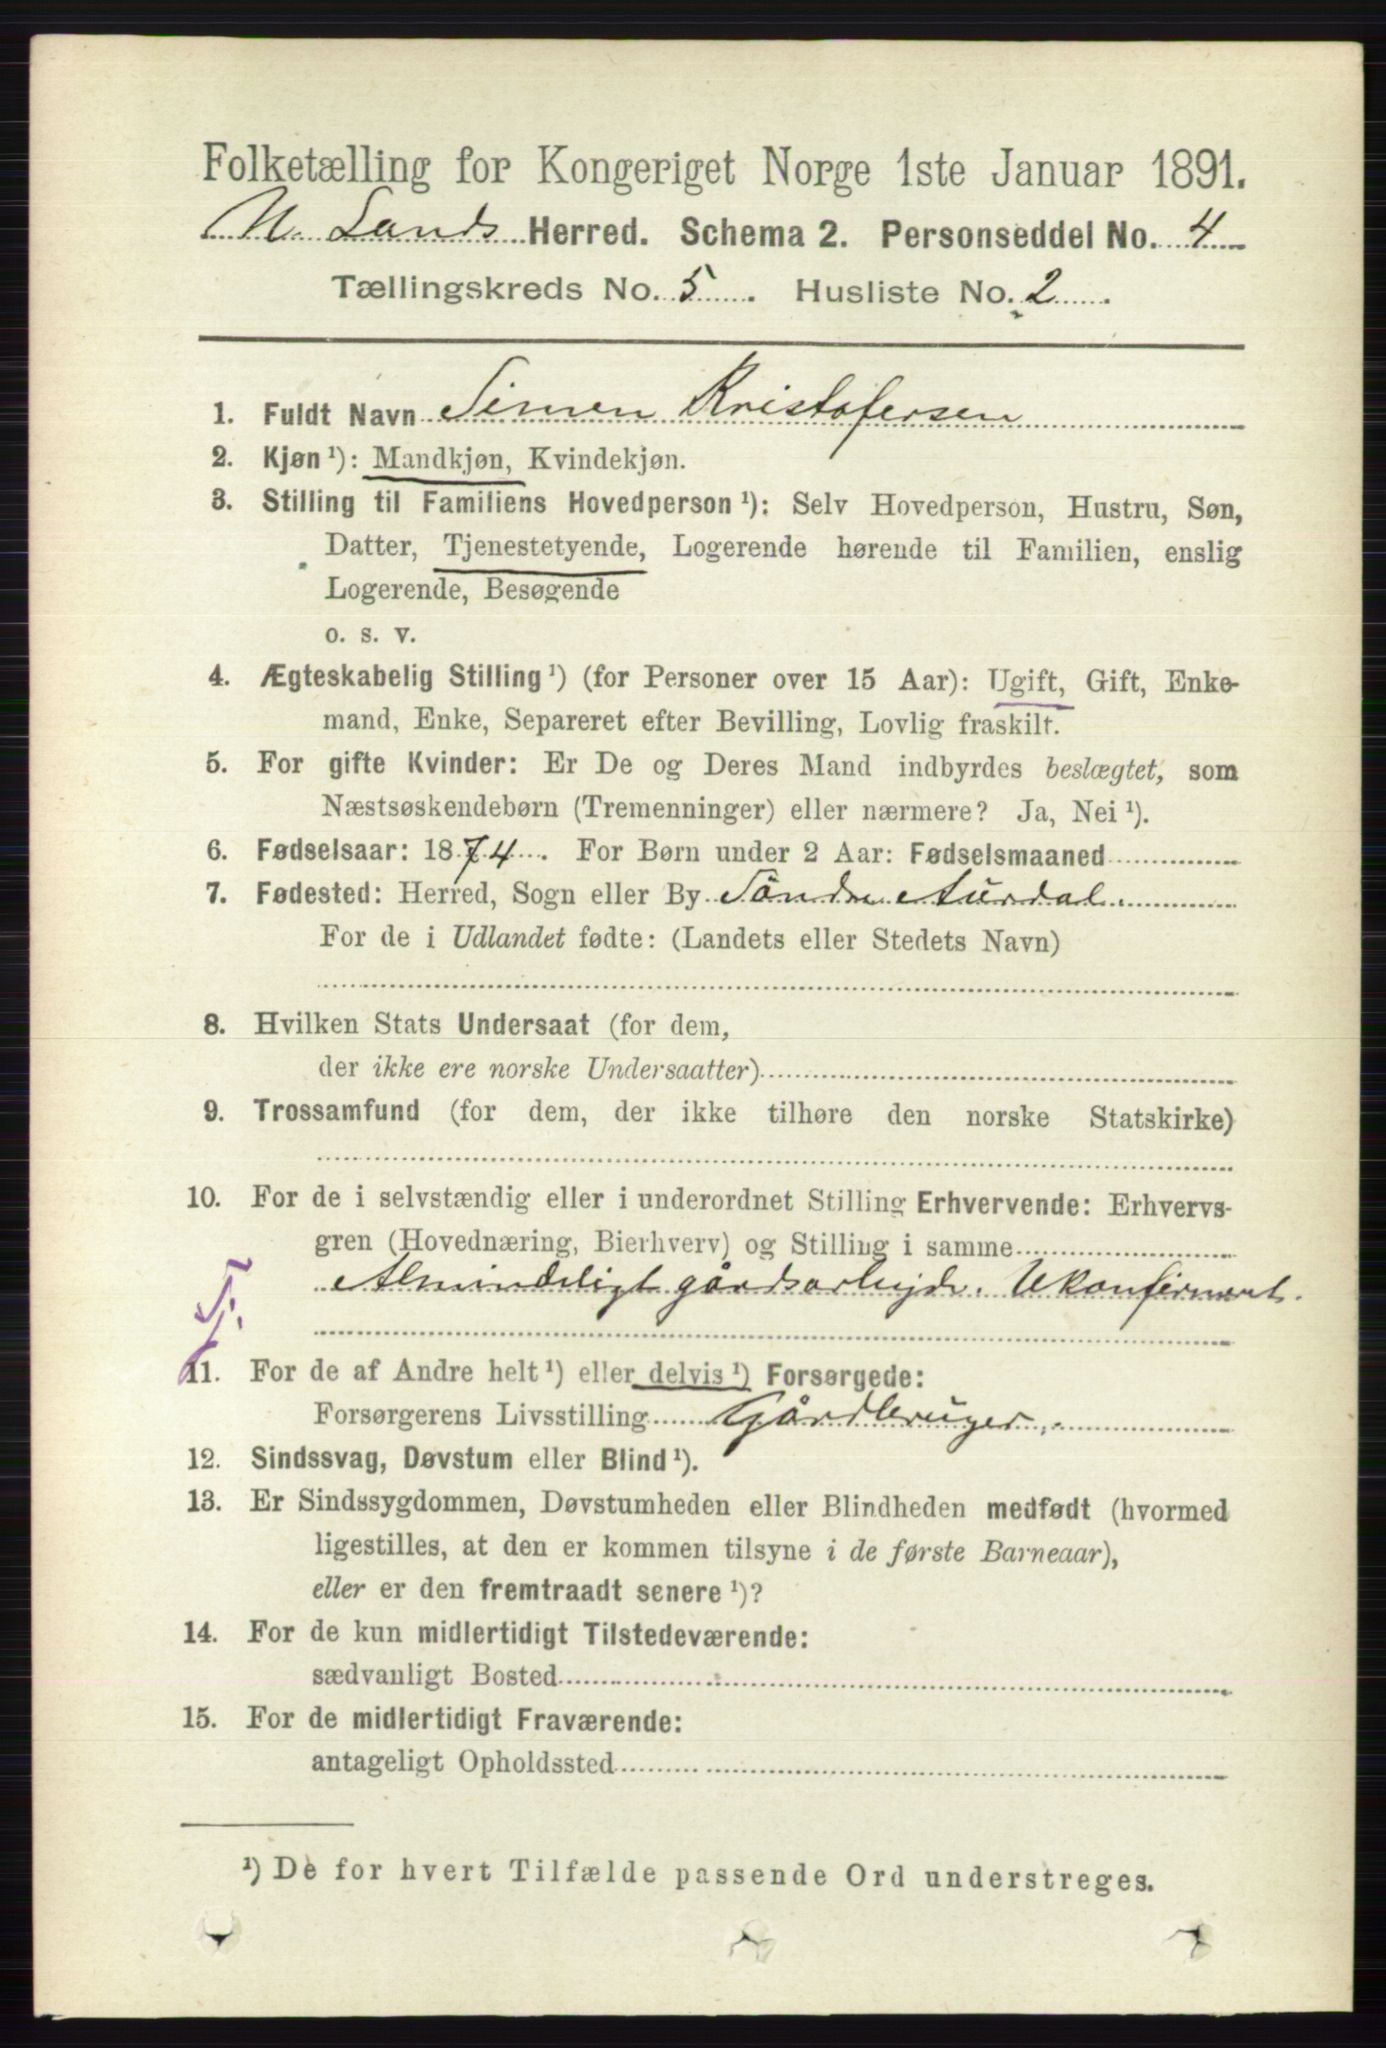 Folketælling for Kongeriget Norge 1ste Januar 1891.
N. Lands Herred. Schema 2. Personseddel No. 4
Tællingskreds No. 5. Husliste No. 2.
1. Fuldt Navn Simen Kristofersen
2. Kjøn ¹): Mandkjøn, Kvindekjøn.
3. Stilling til Familiens Hovedperson ¹): Selv Hovedperson, Hustru, Søn,
Datter, Tjenestetyende, Logerende hørende til Familien, enslig
Logerende, Besøgende
o. s. v.
4. Ægteskabelig Stilling ¹) (for Personer over 15 Aar): Ugift, Gift, Enke-
mand, Enke, Separeret efter Bevilling, Lovlig fraskilt.
5. For gifte Kvinder: Er De og Deres Mand indbyrdes beslægtet, som
Næstsøskendebørn (Tremenninger) eller nærmere? Ja, Nei ¹).
6. Fødselsaar: 1874. For Børn under 2 Aar: Fødselsmaaned
7. Fødested: Herred, Sogn eller By Söndre Aurdal.
For de i Udlandet fødte: (Landets eller Stedets Navn)
8. Hvilken Stats Undersaat (for dem,
der ikke ere norske Undersaatter)
9. Trossamfund (for dem, der ikke tilhøre den norske Statskirke)
10. For de i selvstændig eller i underordnet Stilling Erhvervende: Erhvervs-
gren (Hovednæring, Bierhverv) og Stilling i samme
Almindeligt gårdsarbejde. Ukonfirmert.
11. For de af Andre helt ¹) eller delvis ¹) Forsørgede:
Forsørgerens Livsstilling Gårdbruger.
12. Sindssvag, Døvstum eller Blind ¹).
13. Er Sindssygdommen, Døvstumheden eller Blindheden medfødt (hvormed
ligestilles, at den er kommen tilsyne i de første Barneaar),
eller er den fremtraadt senere ¹)?
14. For de kun midlertidigt Tilstedeværende:
sædvanligt Bosted
15. For de midlertidigt Fraværende:
antageligt Opholdssted
¹) De for hvert Tilfælde passende Ord understreges.